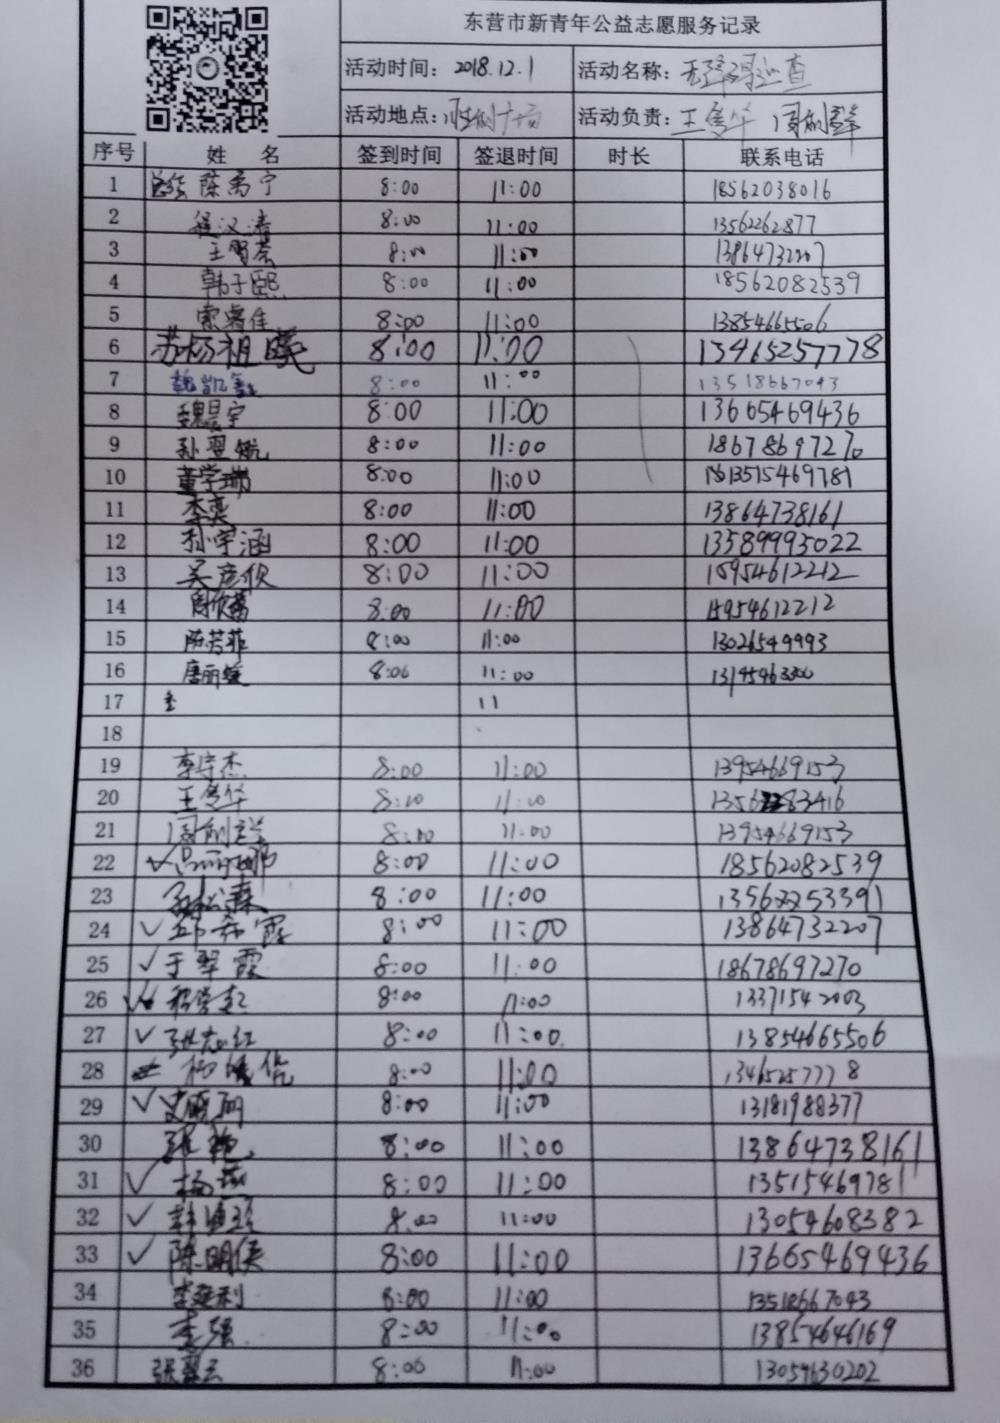 东营市新青年公益志愿服务记录
活动时间: 2018.12.1 活动名称: 无障碍巡查
活动地点: 胜利广场 活动负责: 王秀华
序号 姓 名 签到时间 签退时间 时长 联系电话
1 陈禹宁 8:00 11:00 18562038016
2 程汉清 8:00 11:00 13562262877
3 8:00 11:00 13864732207
4 韩子熙 8:00 11:00 18562082539
5 索睿佳 8:00 11:00 13854665506
6 苏杨祖曦 8:00 11:00 13465257778
7 8:00 11:00 13518667043
8 魏晨宇 8:00 11:00 13665469436
9 孙翌航 8:00 11:00 18678697270
10 董学瑞 8:00 11:00 13515469781
11 李奕 8:00 11:00 13864738161
12 孙宇涵 8:00 11:00 13589995022
13 吴彦欣 8:00 11:00 15954612212
14 周欣茹 8:00 11:00 15954612212
15 陈芳菲 8:00 11:00 13026549993
16 8:00 11:00
17 11
18
19 李守杰 8:00 11:00 13954669153
20 王秀华 8:00 11:00
21 8:00 11:00 13954669153
22 ✓ 吕丽娜 8:00 11:00 18562082539
23 8:00 11:00 13562253391
24 ✓ 8:00 11:00 13864732207
25 ✓ 于翠霞 8:00 11:00 18678697270
26 程学起 8:00 11:00 13371542003
27 ✓ 张志红 8:00 11:00 13854665506
28 8:00 11:00 13465257778
29 ✓ 史晓丽 8:00 11:00 13181988377
30 张艳 8:00 11:00 13864738161
31 ✓ 杨燕 8:00 11:00 13515469781
32 ✓ 8:00 11:00 13054608382
33 ✓ 陈明侠 8:00 11:00 13665469436
34 李建利 8:00 11:00 13518667043
35 李强 8:00 11:00 13854646169
36 张翠云 8:00 11:00 13054630202